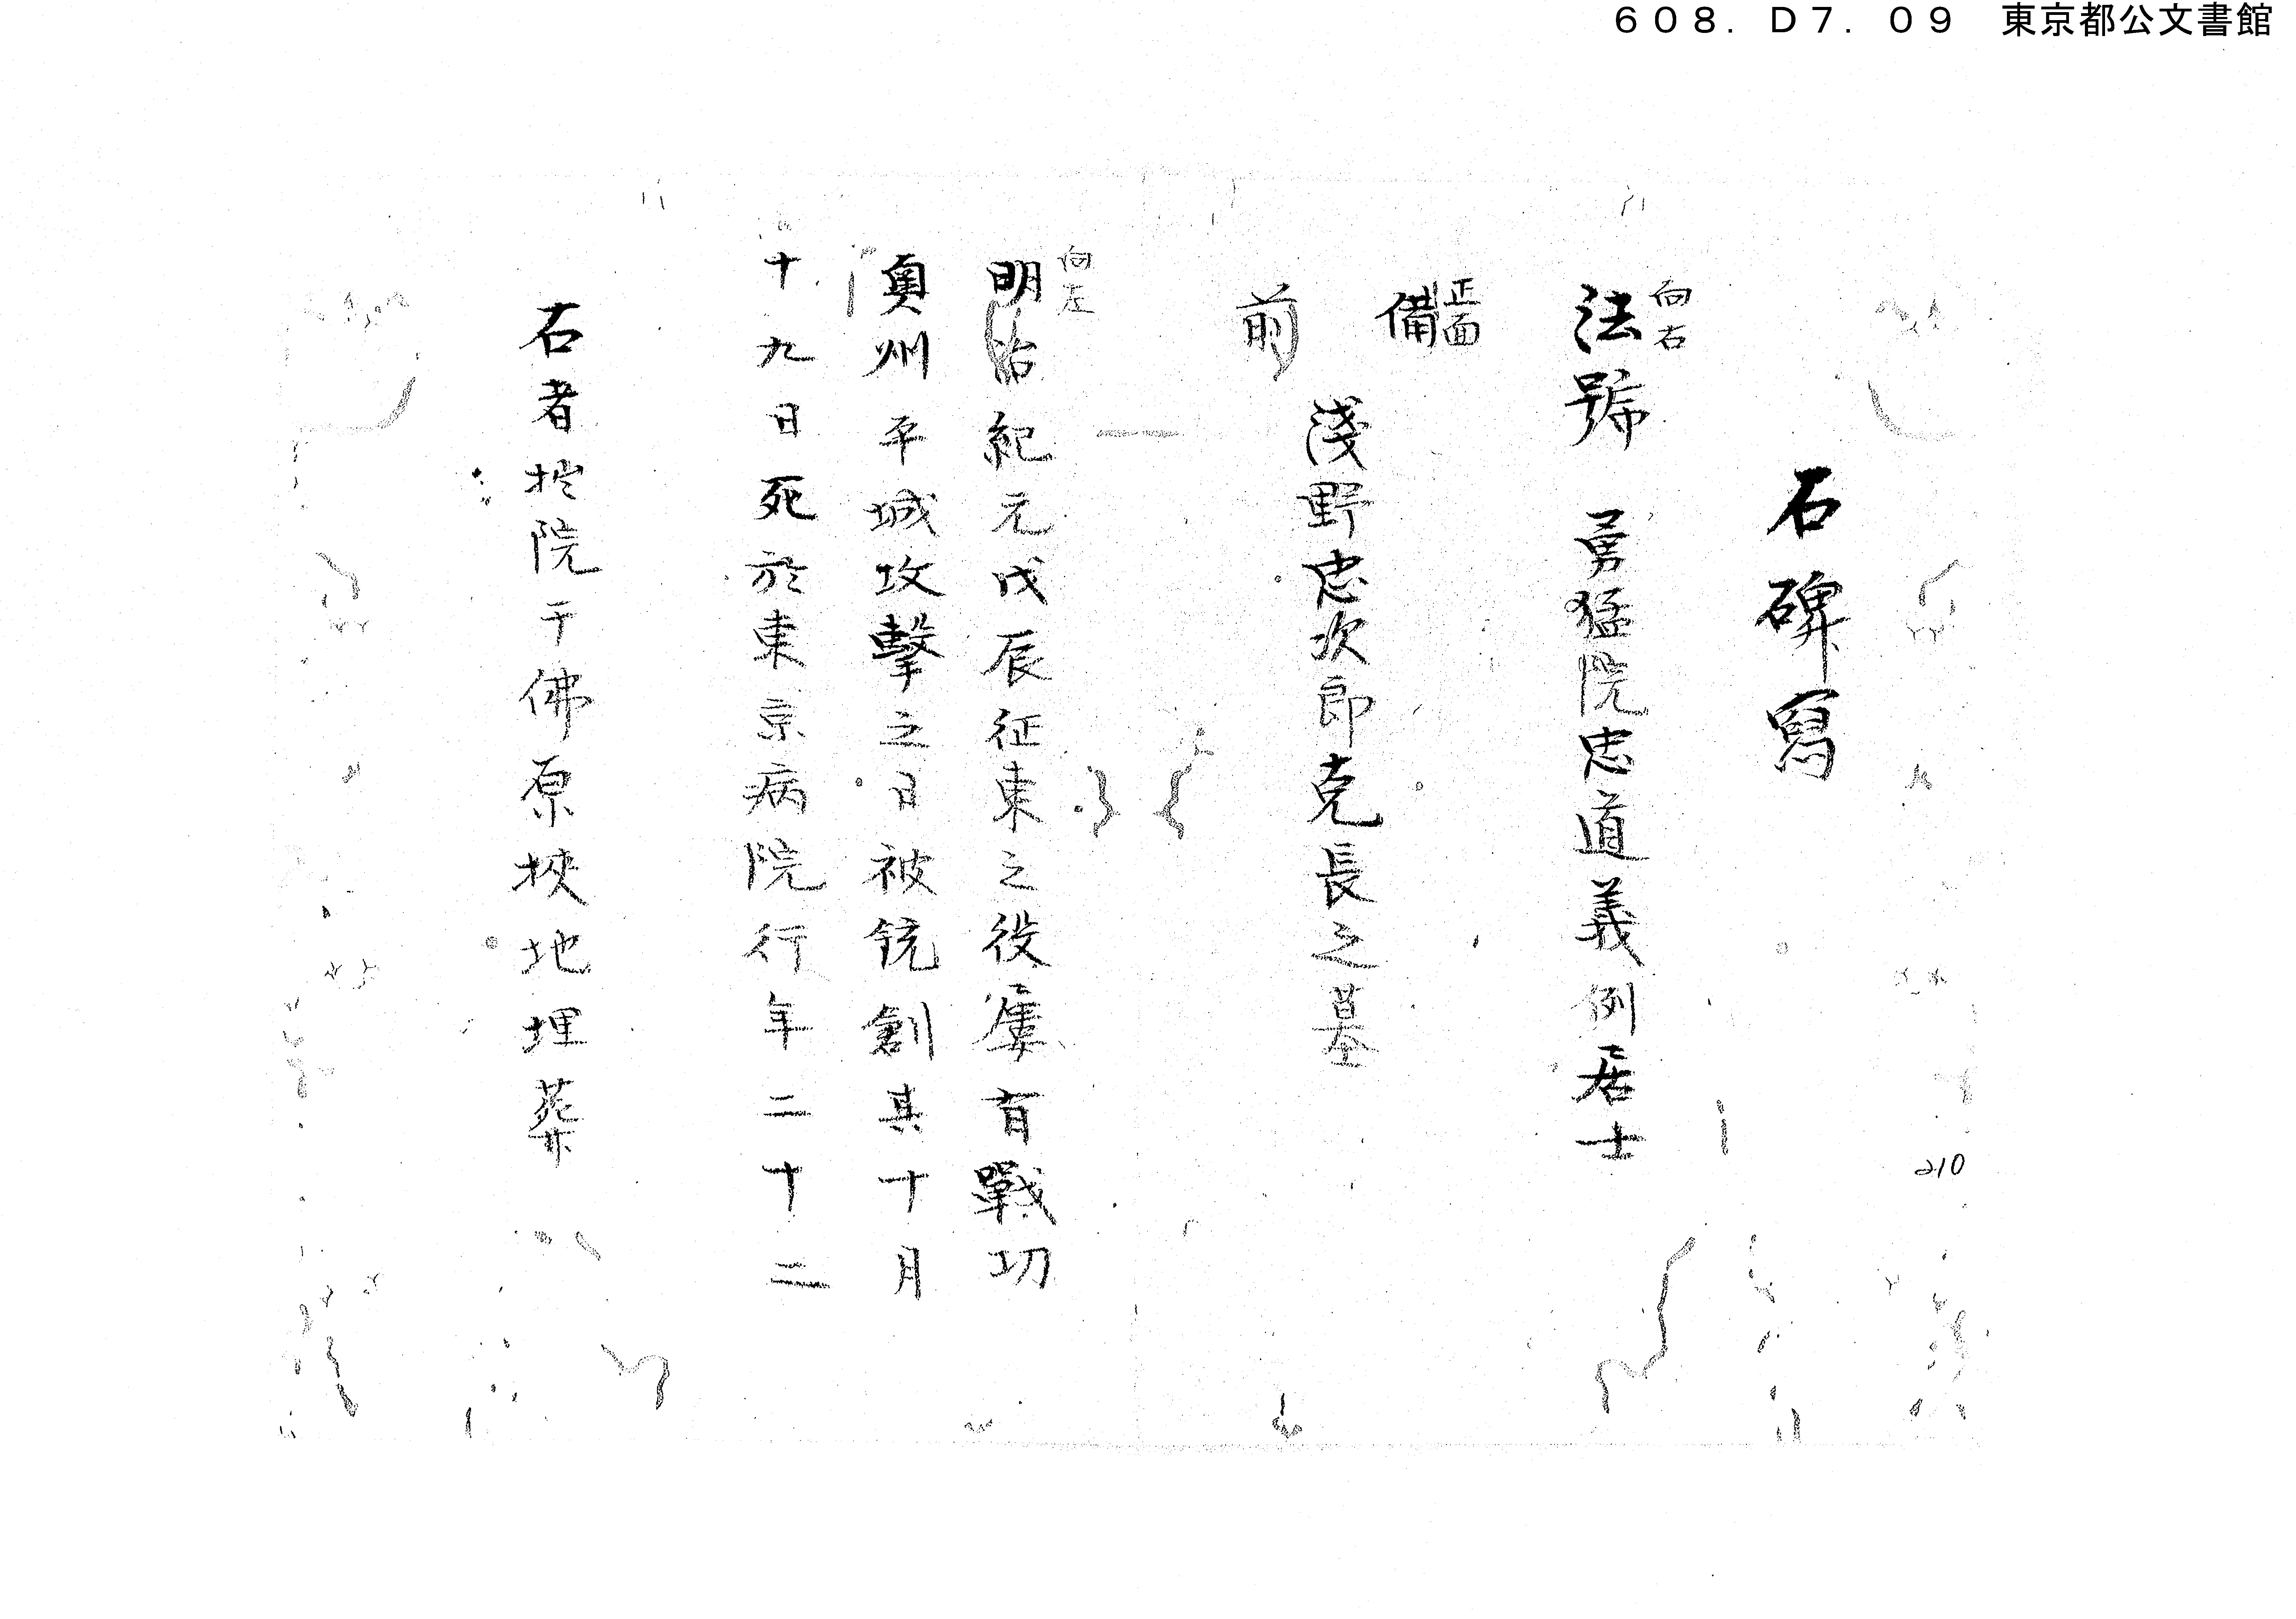 608. D7. 09 東京都公文書館
石碑寫
向右
法號 勇猛院忠道義例居士
正面
備前
淺野忠次郎克長之墓
向左
明治紀元戊辰征東之役屢有戰功
奥州平城攻擊之日被銃創其十月
十九日死於東京病院行年二十二
右者於院干佛原挾地埋葬
210